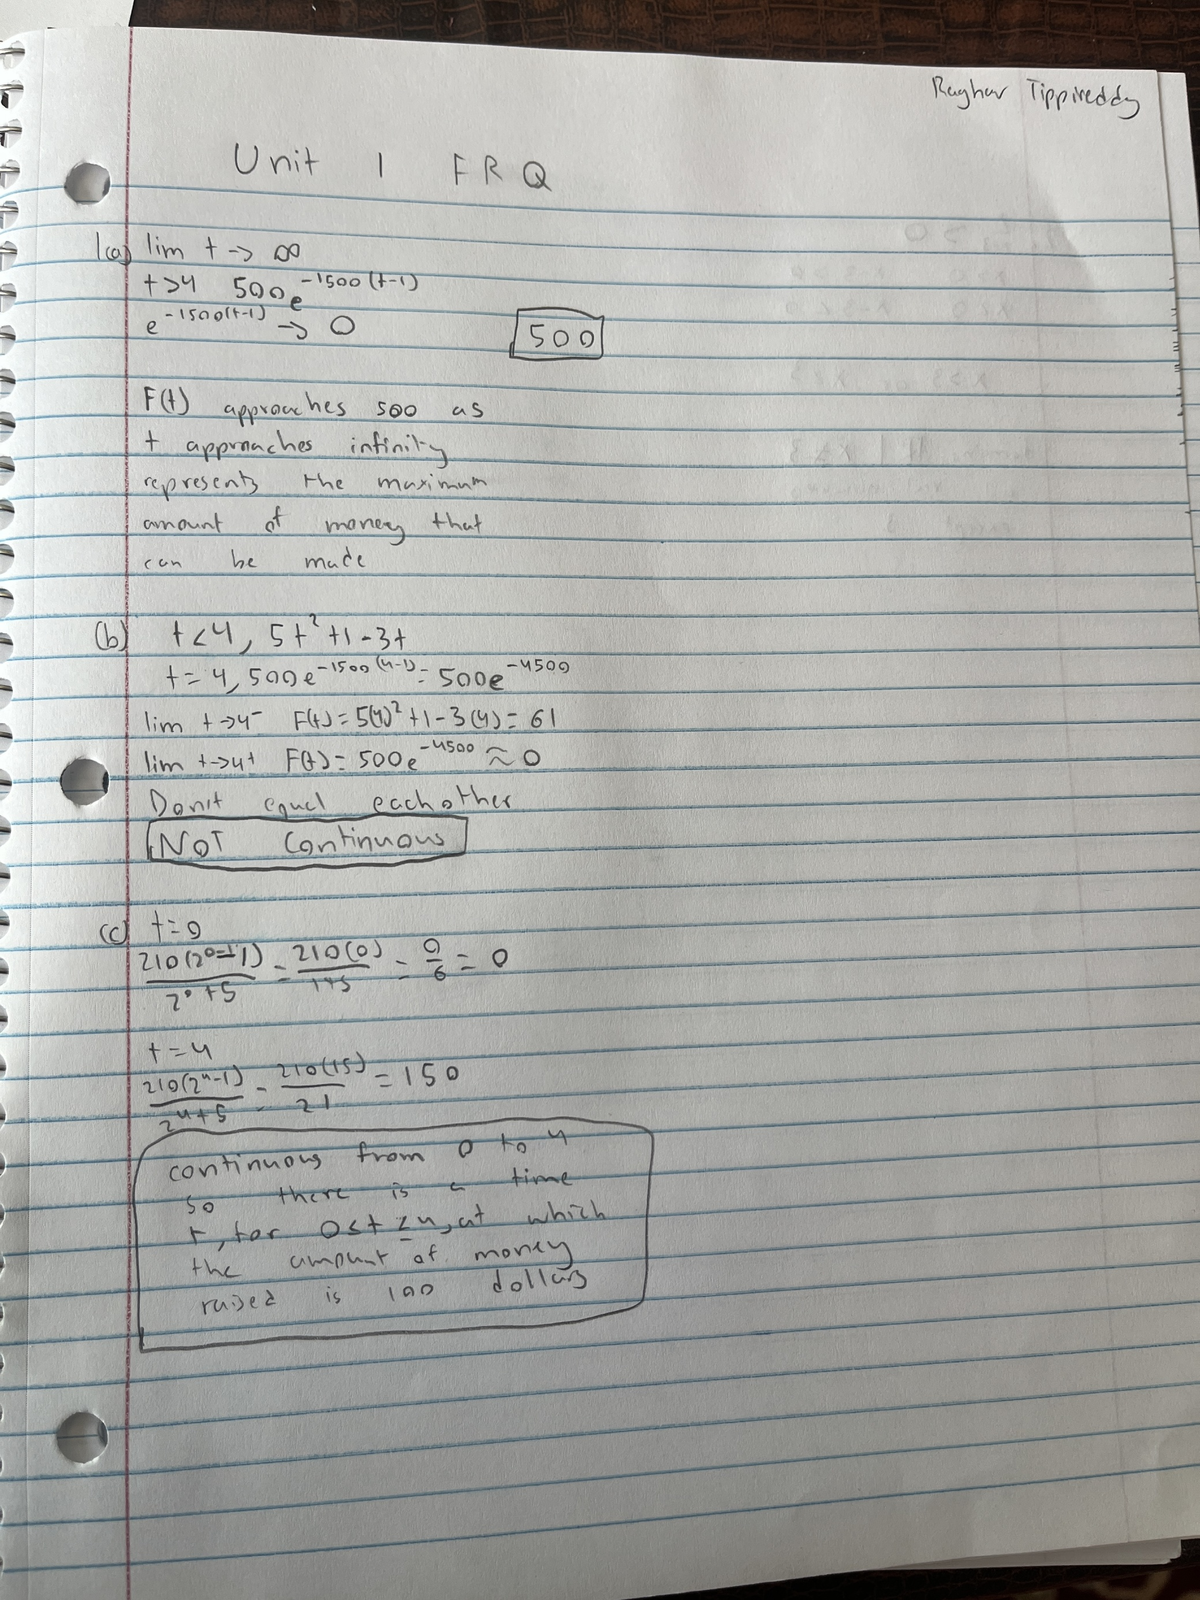 Raghav Tippireddy
Unit 1 FRQ
1(a) lim t → ∞
t>4 500e^-1500(t-1)
e^-1500(t-1) → 0
500
F(t) approaches 500 as
t approaches infinity
represents the maximum
amount of money that
can be made
(b) t<4, 5t²+1-3t
t=4, 500e^-1500(4-1) = 500e^-4500
lim t→4⁻ F(t)=5(4)²+1-3(4)=61
lim t→4+ F(t)=500e^-4500 ≈ 0
Don't equal eachother
NOT Continuous
(c) t=0
210(2^0-1)/2^0+5 = 210(0)/1+5 = 0/6 = 0
t=4
210(2^4-1)/2^4+5 = 210(15)/21 = 150
continuous from 0 to 4
so there is a time
t, for 0≤t≤4, at which
the amount of money
raised is 100 dollars